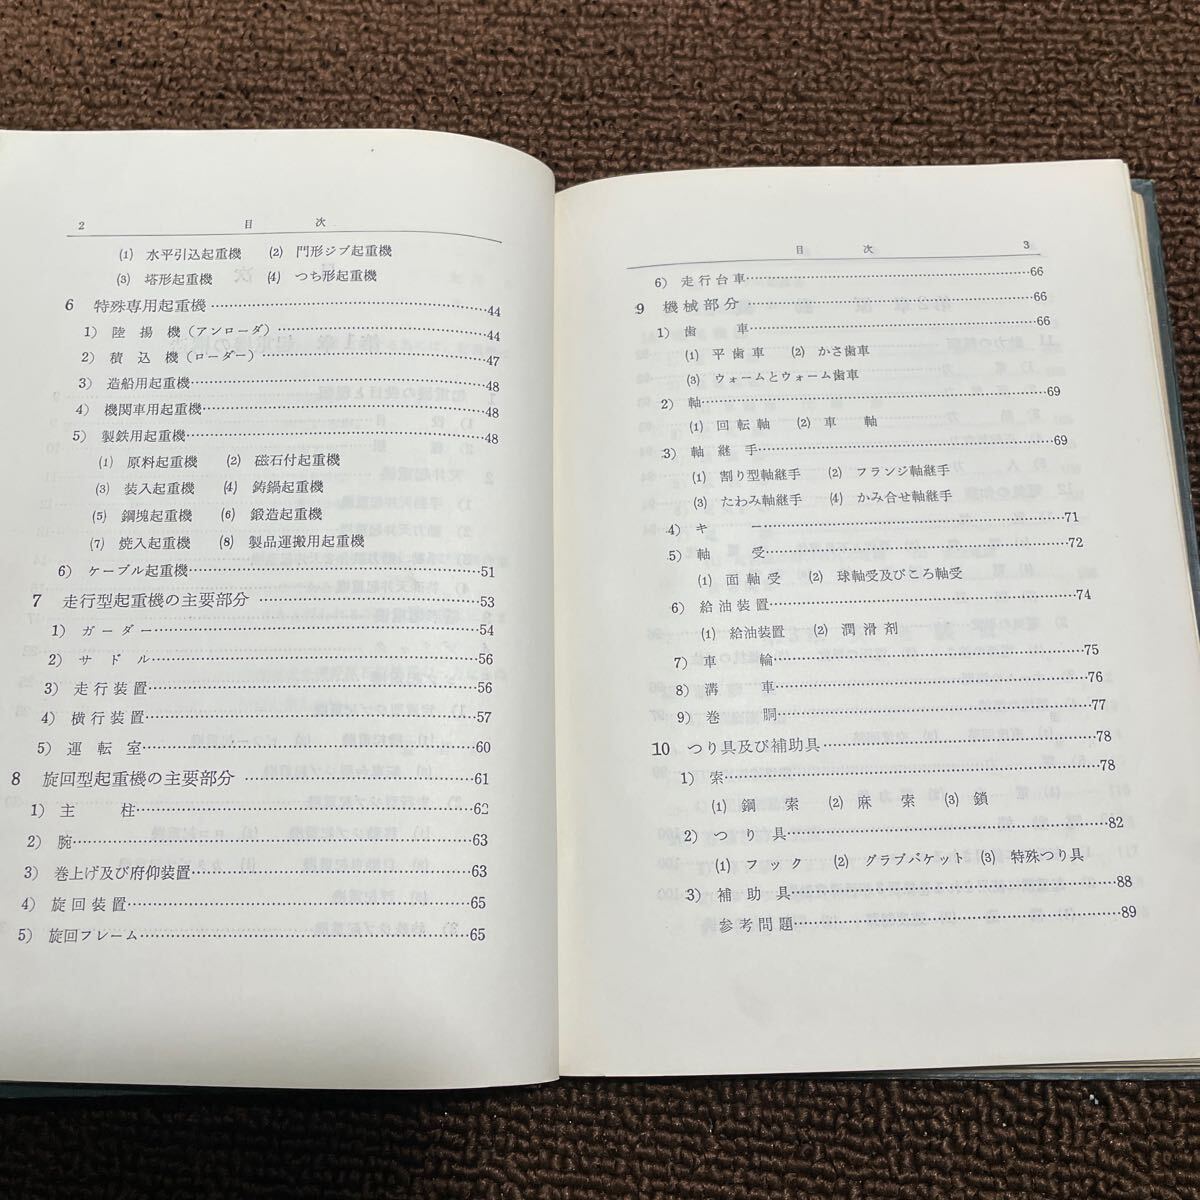 2 目 次
(1) 水平引込起重機 (2) 門形ジブ起重機
(3) 塔形起重機 (4) つち形起重機
6 特殊専用起重機……44
1) 陸揚機(アンローダ)……44
2) 積込機(ローダー)……47
3) 造船用起重機……48
4) 機関車用起重機……48
5) 製鉄用起重機……48
(1) 原料起重機 (2) 磁石付起重機
(3) 装入起重機 (4) 鋳鍋起重機
(5) 鋼塊起重機 (6) 鍛造起重機
(7) 焼入起重機 (8) 製品運搬用起重機
6) ケーブル起重機……51
7 走行型起重機の主要部分……53
1) ガーダー……54
2) サドル……56
3) 走行装置……56
4) 横行装置……57
5) 運転室……60
8 旋回型起重機の主要部分……61
1) 主柱……62
2) 腕……63
3) 巻上げ及び府仰装置……63
4) 旋回装置……65
5) 旋回フレーム……65
目 次 3
6) 走行台車……66
9 機械部分……66
1) 歯車……66
(1) 平歯車 (2) かさ歯車
(3) ウォームとウォーム歯車
2) 軸……69
(1) 回転軸 (2) 車軸
3) 軸継手……69
(1) 割り型軸継手 (2) フランジ軸継手
(3) たわみ軸継手 (4) かみ合せ軸継手
4) キー……71
5) 軸受……72
(1) 面軸受 (2) 球軸受及びころ軸受
6) 給油装置……74
(1) 給油装置 (2) 潤滑剤
7) 車輪……75
8) 溝車……76
9) 巻胴……77
10 つり具及び補助具……78
1) 索……78
(1) 鋼索 (2) 麻索 (3) 鎖
2) つり具……82
(1) フック (2) グラブバケット (3) 特殊つり具
3) 補助具……88
参考問題……89